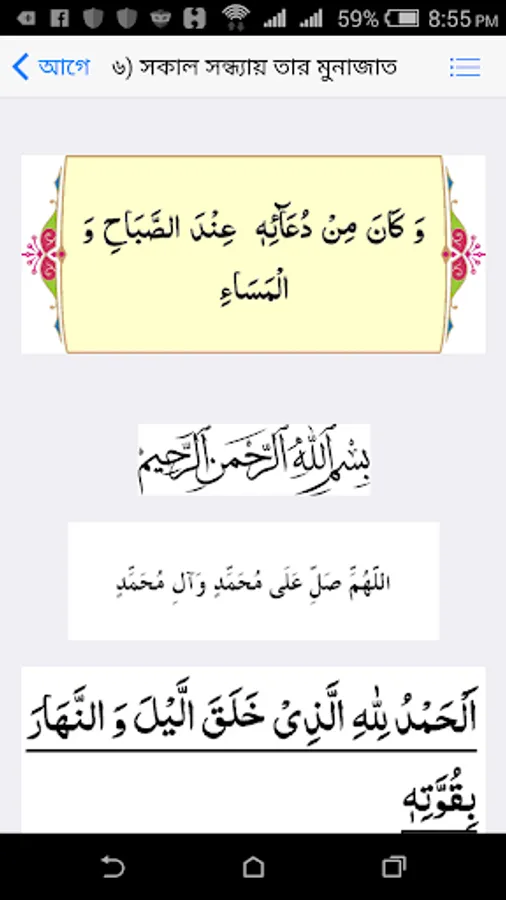 59% 8:55 PM
আগে ৬) সকাল সন্ধ্যায় তার মুনাজাত
وَ كَانَ مِنْ دُعَآئِهٖ عِنْدَ الصَّبَاحِ وَ
الْمَسَاءِ
بِسْمِ ٱللَّٰهِ ٱلرَّحْمَٰنِ ٱلرَّحِيمِ
اللّهُمَّ صَلِّ عَلَى مُحَمَّدٍ وَآلِ مُحَمَّدٍ
اَلْحَمْدُ لِلّٰهِ الَّذِیْ خَلَقَ الَّیْلَ وَ النَّهَارَ
بِقُوَّتِهٖ